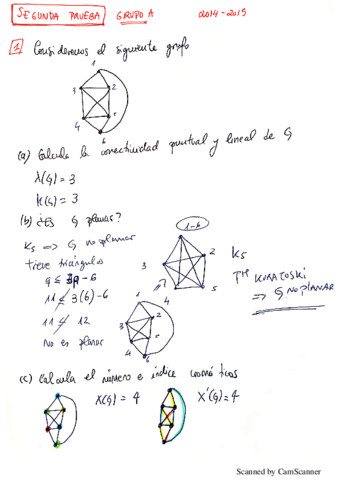 SEGUNDA PRUEBA GRUPO A 2014-2015
1 Consideremos el siguiente grafo
1
3 2
4 5
6
(a) Calcula la conectividad puntual y lineal de G
λ(G) = 3
k(G) = 3
(b) ¿Es G planar?
K5 => G no planar
tiene triángulos
q ≤ 3p - 6
11 ≤ 3(6) - 6
11 ≤ 12
No es planar
1-6
3 2
4 5
K5
Tª KURATOSKI
=> G NO PLANAR
1
3 2
4 5
6
(c) Calcula el número e índice cromáticos
χ(G) = 4 χ'(G) = 4
Scanned by CamScanner